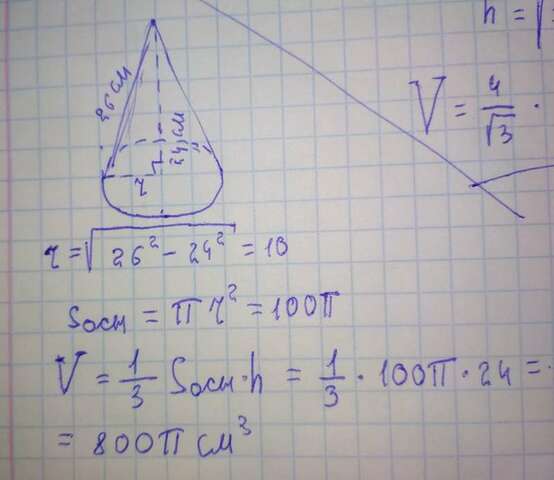 h = √
V = 4/√3 ·
26 см
24 см
r
r = √26² − 24² = 10
Sосн = π r² = 100π
V = 1/3 Sосн · h = 1/3 · 100π · 24 =
= 800π см³